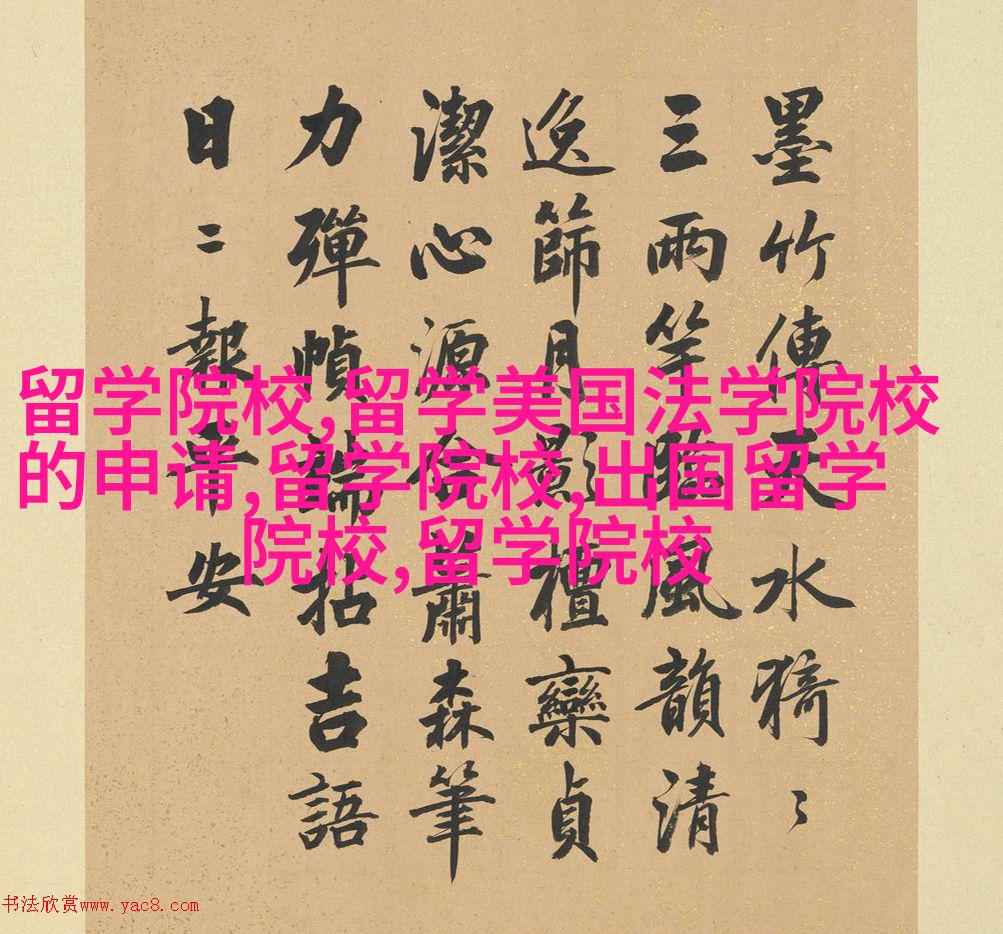 留学院校,留学美国法学院校
的申请,留学院校,出国留学
院校,留学院校
墨竹傳天水猗〻
三兩竿臨風韻清
逸篩月影檀欒貞
潔心源蕭森筆
力彈幀端拈吉語
日二報平安
书法欣赏www.yac8.com